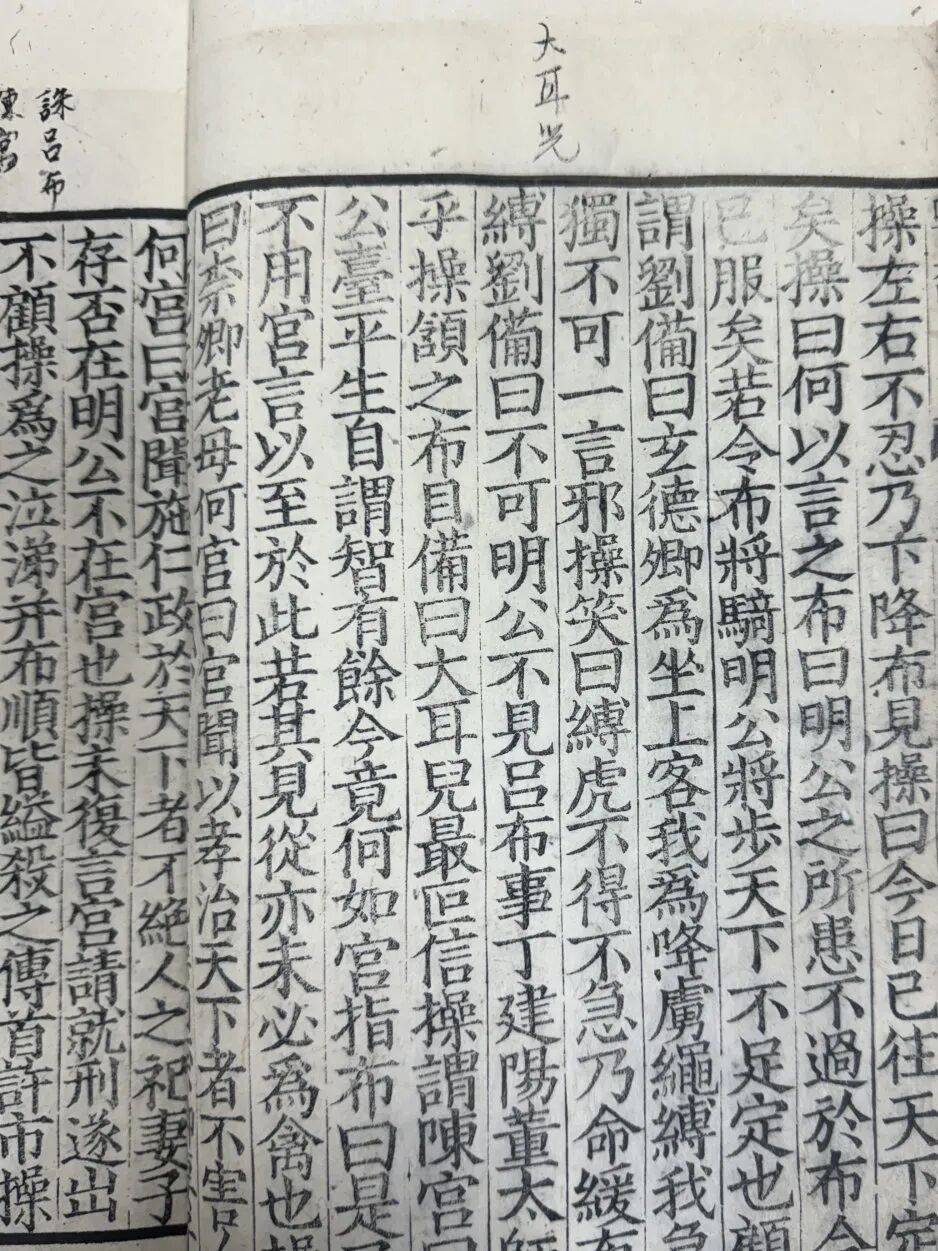 大耳児
操左右不忍乃下降布見操曰今日已往天下定
矣操曰何以言之布曰明公之所患不過於布今
已服矣若令布將騎明公將步天下不足定也顧
謂劉備曰玄德卿爲坐上客我為降虜繩縛我急
獨不可一言邪操笑曰縛虎不得不急乃命緩布
縛劉備曰不可明公不見呂布事丁建陽董太師
乎操頷之布目備曰大耳兒最叵信操謂陳宮曰
公臺平生自謂智有餘今竟何如宮指布曰是
不用宮言以至於此若其見從亦未必爲禽也操
曰柰卿老母何宮曰宮聞以孝治天下者不害
誅呂布
陳宮
何宮曰宮聞施仁政於天下者不絶人之祀妻子
存否在明公不在宮也操未復言宮請就刑遂出
不顧操爲之泣涕并布順皆縊殺之傳首許市操